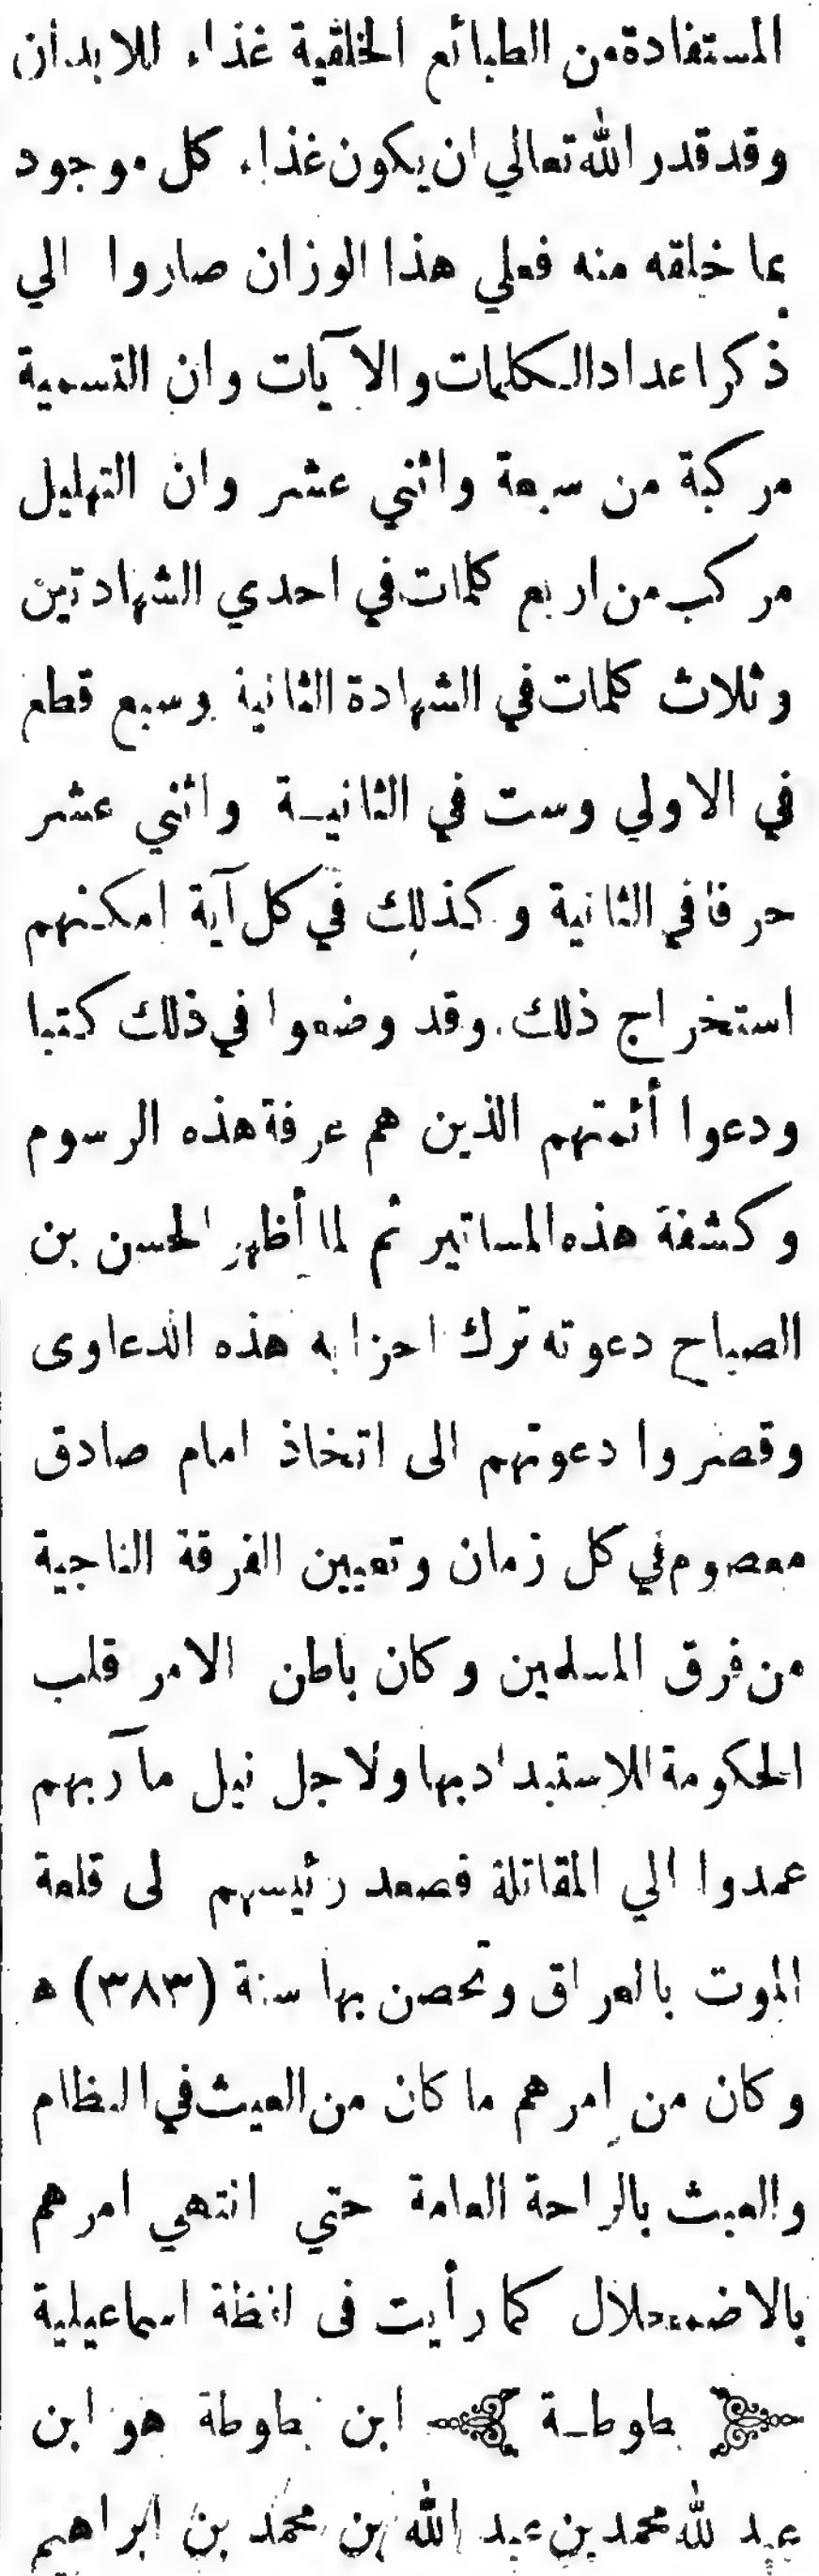 المستفادة من الطبائع الخلقية غذاء للابدان
وقد قدر الله تعالي ان يكون غذاء كل موجود
بما خلقه منه فعلي هذا الوزان صاروا الي
ذكر اعداد الكلمات والآيات وان التسمية
مركبة من سبعة واثني عشر وان التهليل
مركب من اربع كلمات في احدي الشهادتين
وثلاث كلمات في الشهادة الثانية وسبع قطع
في الاولي وست في الثانيـة واثني عشر
حرفا في الثانية وكذلك في كل آية امكنهم
استخراج ذلك. وقد وضعوا في ذلك كتبا
ودعوا أئمتهم الذين هم عرفة هذه الرسوم
وكشفة هذه المساتير ثم لما أظهر الحسن بن
الصباح دعوته ترك احزابه هذه الدعاوى
وقصروا دعوتهم الى اتخاذ امام صادق
معصوم في كل زمان وتعيين الفرقة الناجية
من فرق المسلمين وكان باطن الامر قلب
الحكومة للاستبداد بها ولاجل نيل مآربهم
عمدوا الي المقاتلة فصعد رئيسهم لى قلعة
الموت بالعراق وتحصن بها سنة (٣٨٣) ه
وكان من امرهم ما كان من العيث في النظام
والعبث بالراحة العامة حتي انتهي امرهم
بالاضمحلال كما رأيت فى لفظة اسماعيلية
بطوطـة ابن بطوطة هو ابن
عبد لله محمد بن عبد الله بن محمد بن ابراهيم